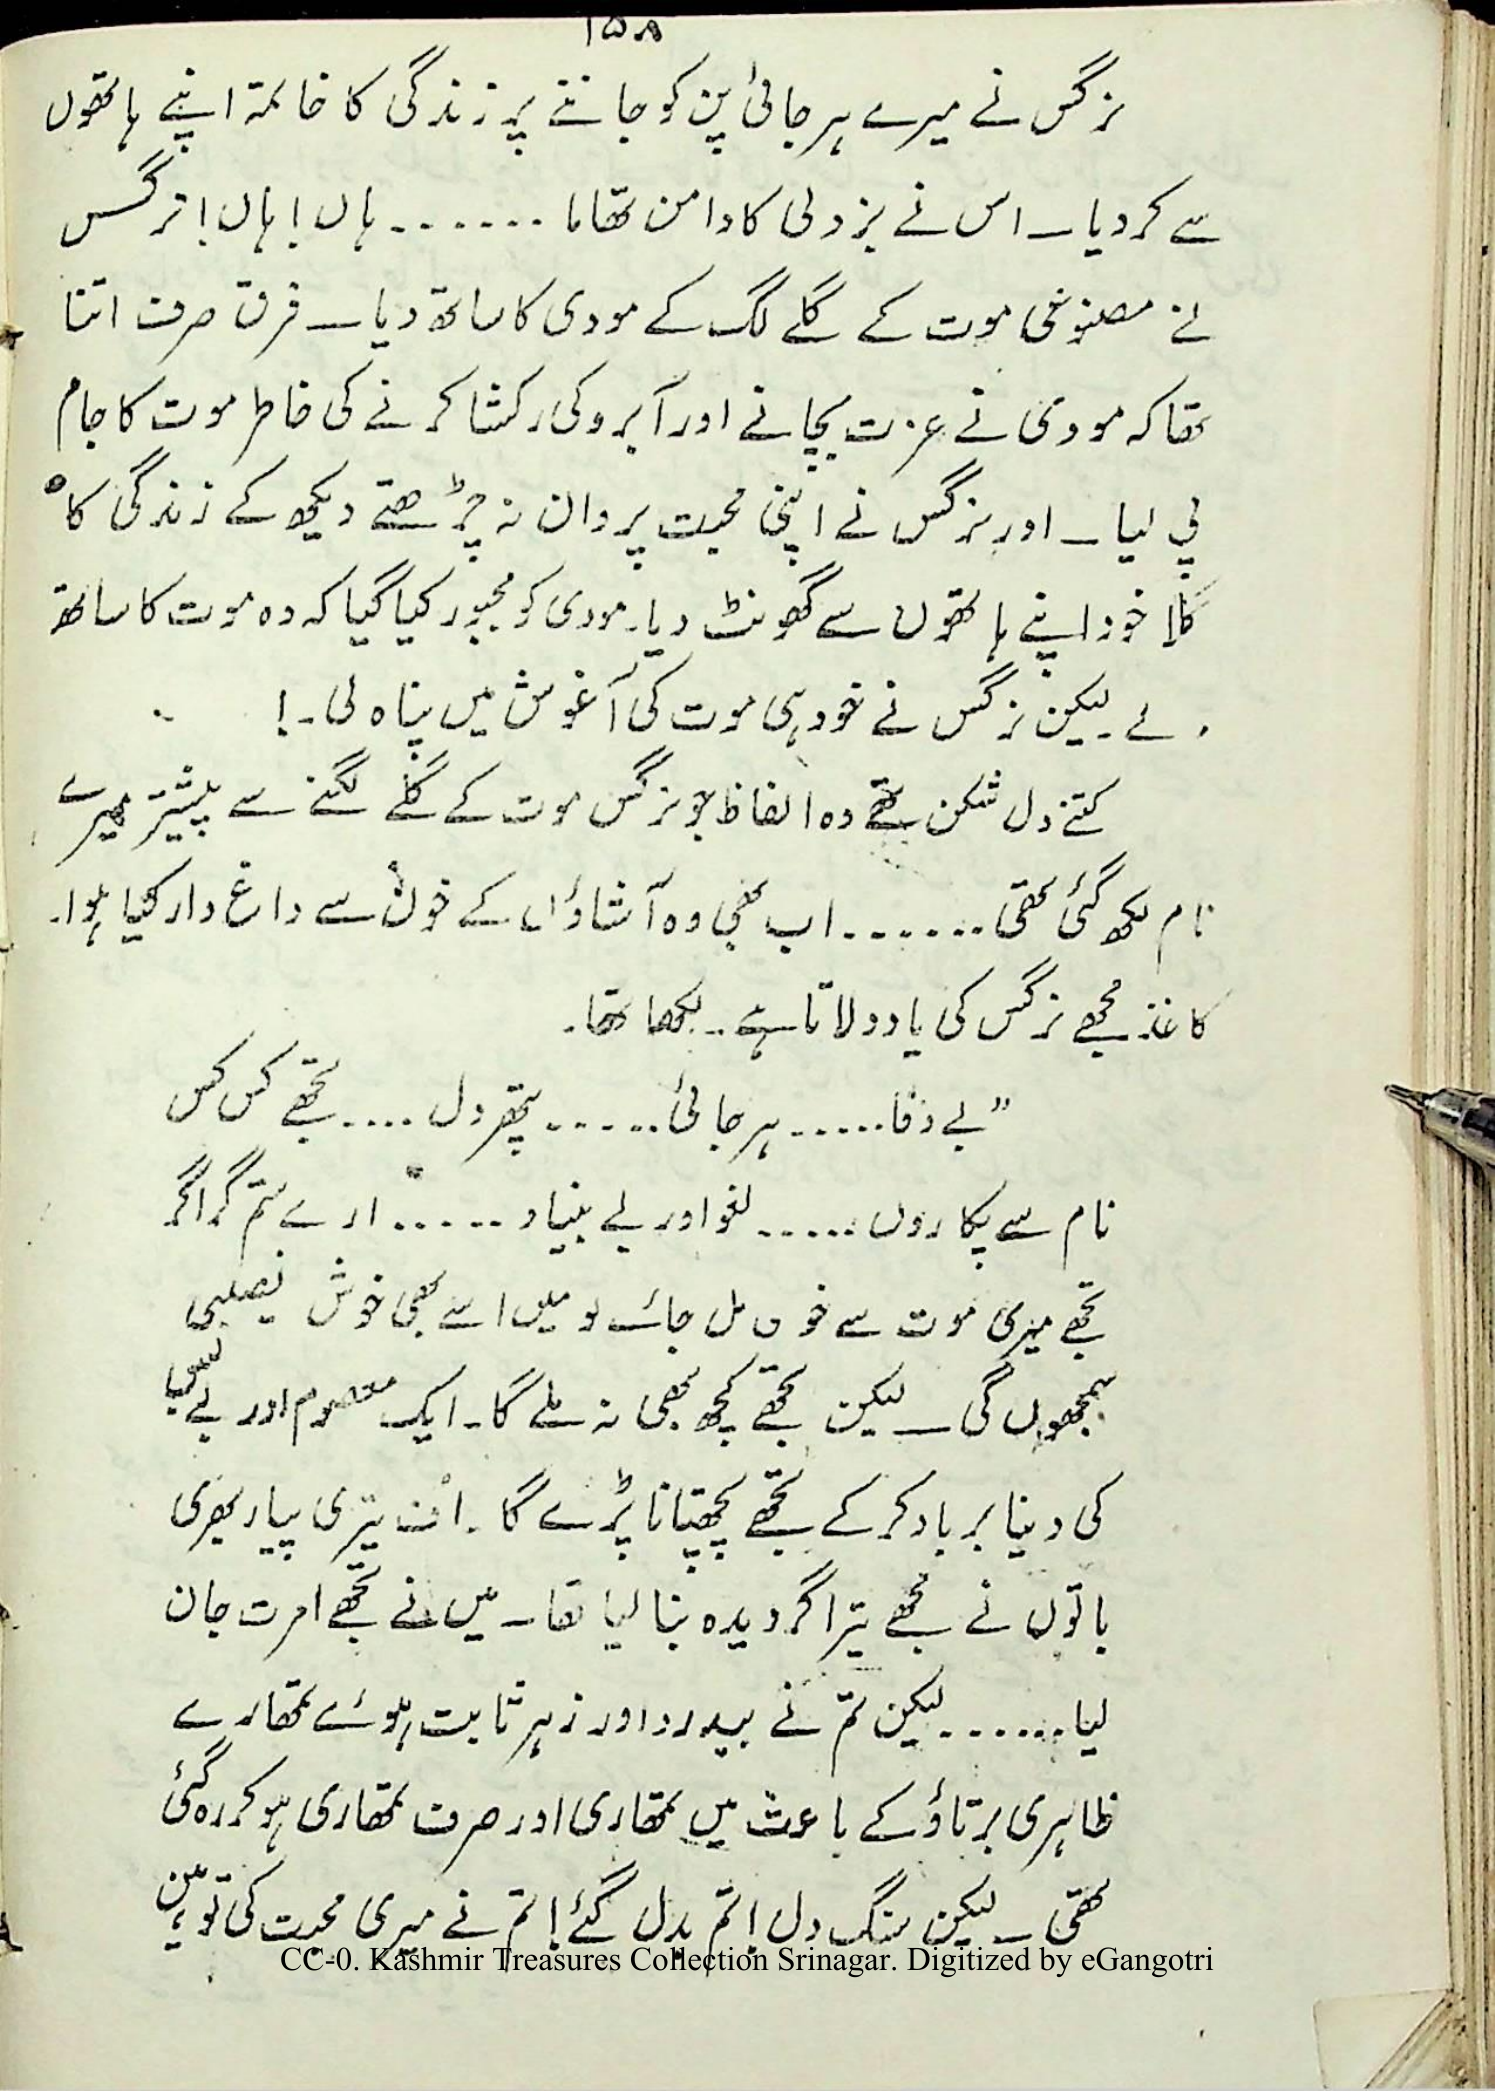 ۱۵۸
نرگس نے میرے ہرجائی پن کو جاننے پر زندگی کا خاتمہ اپنے ہاتھوں
سے کر دیا ۔ اس نے بزدلی کا دامن تھاما ۔۔۔۔۔۔ ہاں ! ہاں ! نرگس
نے مصنوعی موت کے گلے لگ کے مودی کا ساتھ دیا ۔ فرق صرف اتنا
تھا کہ مودی نے عزت بچانے اور آبرو کی رکشا کرنے کی خاطر موت کا جام
پی لیا ۔ اور نرگس نے اپنی محبت پروان نہ چڑھتے دیکھ کے زندگی کا
گلا خود اپنے ہاتھوں سے گھونٹ دیا ۔ مودی کو مجبور کیا گیا کہ وہ موت کا ساتھ
لے ۔ لیکن نرگس نے خود ہی موت کی آغوش میں پناہ لی ۔ !
کتنے دل شکن تھے وہ الفاظ جو نرگس موت کے گلے لگنے سے پیشتر میرے
نام لکھ گئی تھی ۔۔۔۔۔۔ اب بھی وہ آشاؤں کے خون سے داغ دار کیا ہوا ۔
کاغذ مجھے نرگس کی یاد دلاتا ہے ۔ لکھا تھا ۔
” بے وفا ۔۔۔۔۔ ہرجائی ۔۔۔۔۔۔ پتھر دل ۔۔۔۔ تجھے کس کس
نام سے پکاروں ۔۔۔۔۔ لغو اور بے بنیاد ۔۔۔۔۔ ارے ستم گر اگر
تجھے میری موت سے مل جائے تو میں اسے بھی خوش نصیبی
سمجھوں گی ۔ لیکن تجھے کچھ بھی نہ ملے گا ۔ ایک معصوم اور
کی دنیا برباد کر کے تجھے پچھتانا پڑے گا ۔ اُف تیری پیار بھری
باتوں نے مجھے تیرا گردیدہ بنا لیا تھا ۔ میں نے تجھے امرت جان
لیا ۔۔۔۔۔۔ لیکن تم نے بیدرد اور زہر ثابت ہوئے تمھارے
ظاہری برتاؤ کے باعث میں تمھاری اور صرف تمھاری ہو کر رہ گئی
تھی ۔ لیکن سنگ دل ! تم بدل گئے ! تم نے میری محبت کی توہین
CC-0. Kashmir Treasures Collection Srinagar. Digitized by eGangotri